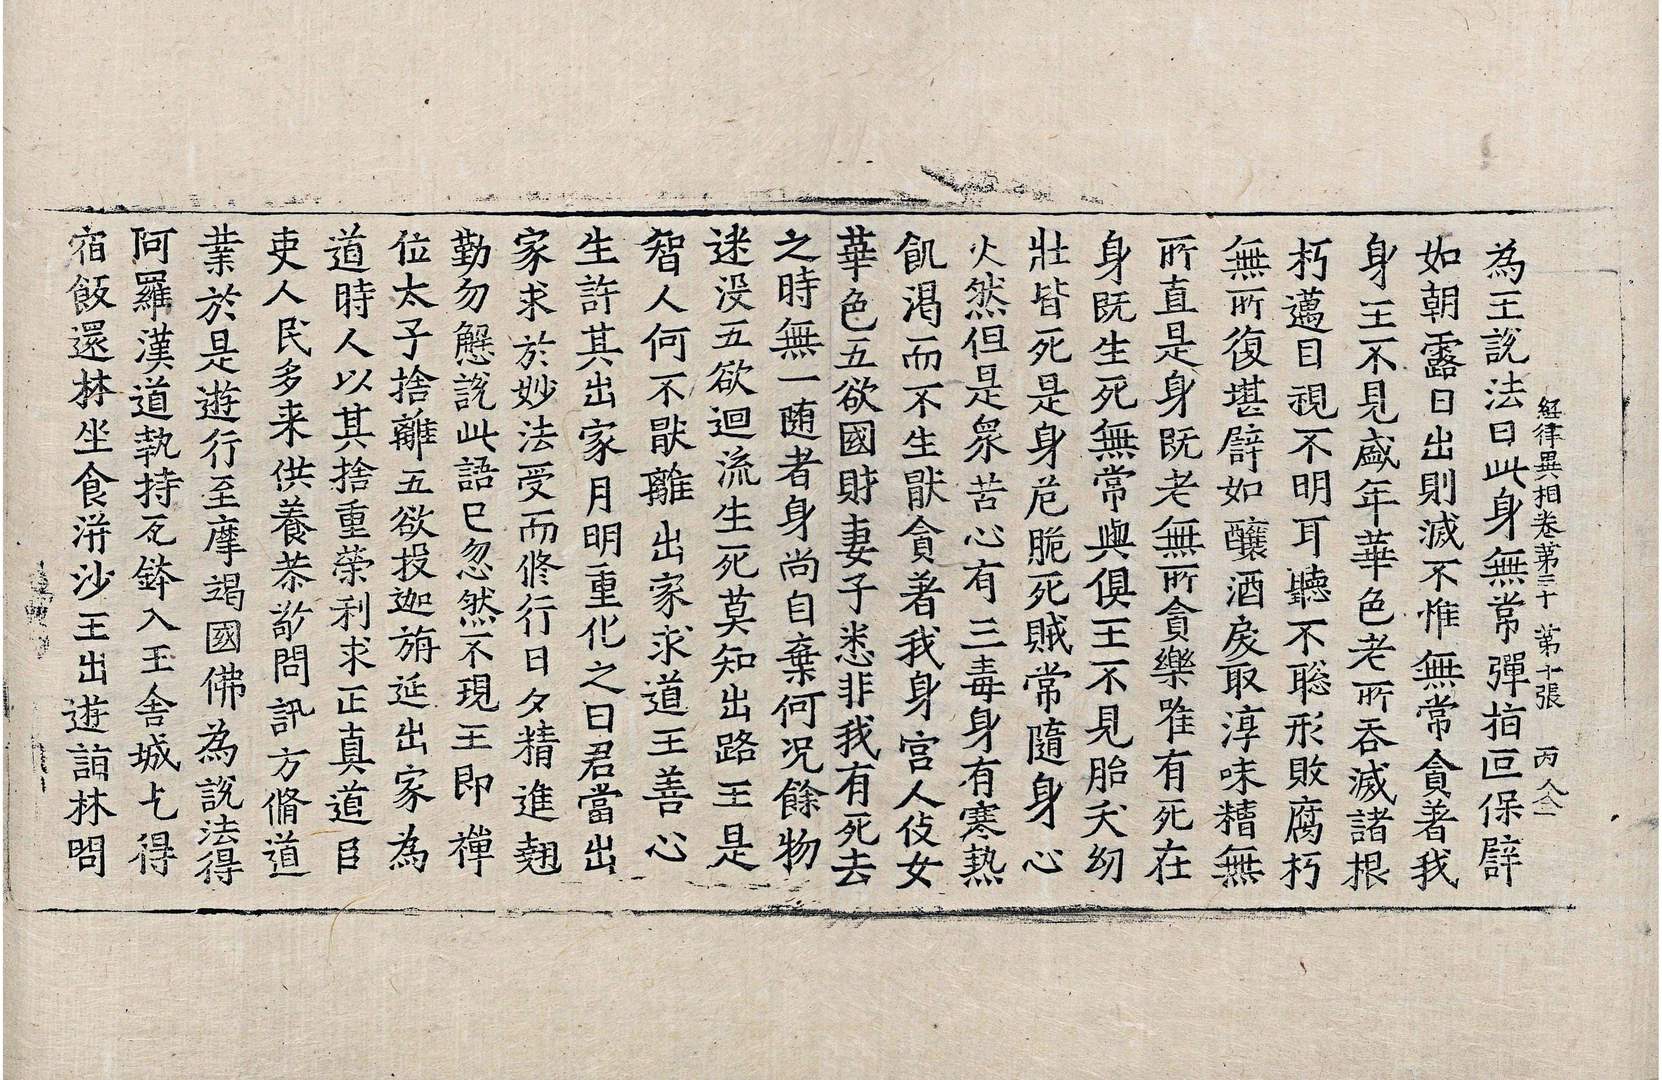 經律異相卷第三十 第十張 丙
為王說法曰此身無常彈指叵保譬
如朝露日出則滅不惟無常貪著我
身王不見盛年華色老所吞滅諸根
朽邁目視不明耳聽不聡形敗腐朽
無所復堪譬如釀酒𡱈取淳味糟無
所直是身既老無所貪樂唯有死在
身既生死無常與俱王不見胎夭幼
壯皆死是身危脆死賊常隨身心
火然但是衆苦心有三毒身有寒熱
飢渴而不生猒貪著我身宮人伎女
華色五欲國財妻子悉非我有死去
之時無一随者身尚自棄何况餘物
迷没五欲迴流生死莫知出路王是
智人何不猒離出家求道王善心
生許其出家月明重化之曰君當出
家求於妙法受而修行日夕精進翹
勤勿懈說此語已忽然不現王即禪
位太子捨離五欲投迦旃延出家為
道時人以其捨重榮利求正真道臣
吏人民多来供養恭敬問訊方脩道
業於是遊行至摩竭國佛為說法得
阿羅漢道執持瓦鉢入王舍城乞得
宿飯還林坐食洴沙王出遊詣林問